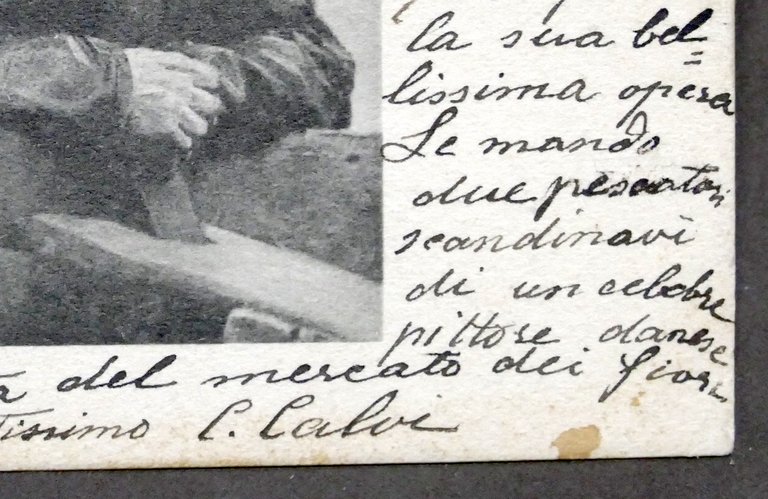 la sua bel=
lissima opera
Le mando
due pescatori
scandinavi
di un celebre
pittore danese
del mercato dei fiori
C. Calvi